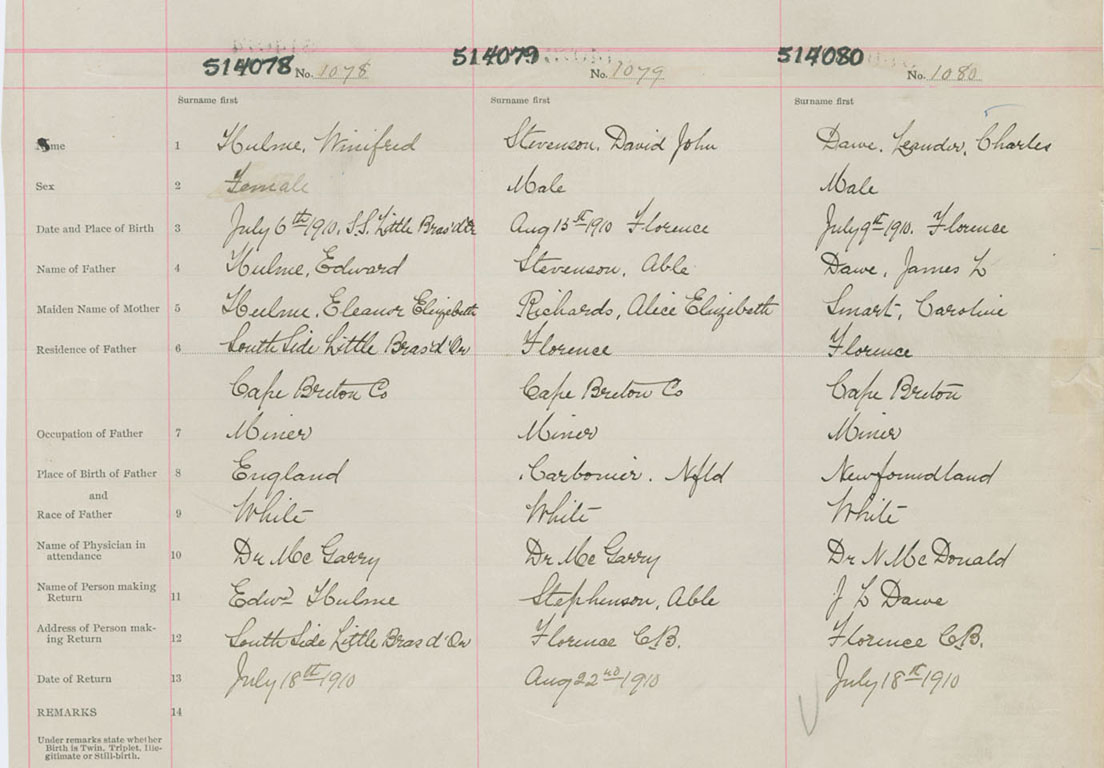 514078 No. 1078 514079 No. 1079 514080 No. 1080
Surname first Surname first Surname first
1 Hulme, Winifred Stevenson, David John Dawe, Leander, Charles
Sex 2 Female Male Male
Date and Place of Birth 3 July 6th 1910, S.S. Little Bras d'Or Aug 15st 1910 Florence July 9th 1910. Florence
Name of Father 4 Hulme, Edward Stevenson, Able Dawe, James L
Maiden Name of Mother 5 Hulme, Eleanor Elizebeth Richards, Alice Elizebeth Smart, Caroline
Residence of Father 6 South Side Little Bras'd'Or Florence Florence
Cape Breton Co Cape Breton Co Cape Breton
Occupation of Father 7 Miner Miner Miner
Place of Birth of Father 8 England Carbonier. Nfld Newfoundland
and
Race of Father 9 White White White
Name of Physician in
attendance 10 Dr Mc Garry Dr Mc Garry Dr N McDonald
Name of Person making
Return 11 Edwd Hulme Stephenson, Able J L Dawe
Address of Person mak-
ing Return 12 South Side Little Bras d'Or Florence C.B. Florence C.B.
Date of Return 13 July 18th 1910 Aug 22nd 1910 July 18th 1910
REMARKS 14
Under remarks state whether
Birth is Twin, Triplet, Ille-
gitimate or Still-birth.